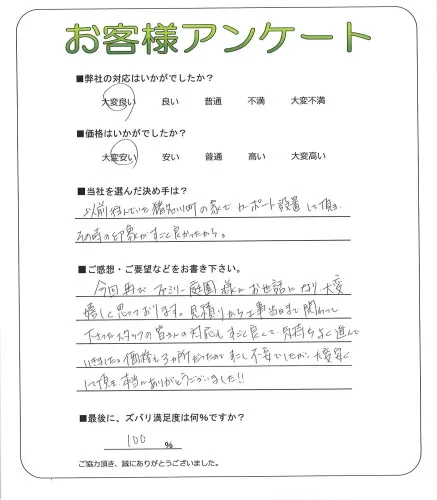 お客様アンケート
■弊社の対応はいかがでしたか？
大変良い 良い 普通 不満 大変不満
■価格はいかがでしたか？
大変安い 安い 普通 高い 大変高い
■当社を選んだ決め手は？
以前住んでいた猪名川町の家でカーポート設置して頂き、
その時の印象がすごく良かったから。
■ご感想・ご要望などをお書き下さい。
今回再びファミリー庭園様にお世話になり大変
嬉しく思っております。見積りから工事当日まで関わって
下さったスタッフの皆さんの対応もすごく良くて、気持ちよく進んで
いきました。価格も3ヶ所だったのですこし不安でしたが、大変安く
して頂き、本当にありがとうございました!!
■最後に、ズバリ満足度は何%ですか？
100 %
ご協力頂き、誠にありがとうございました。